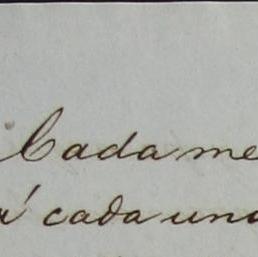 Cada me
a' cada una